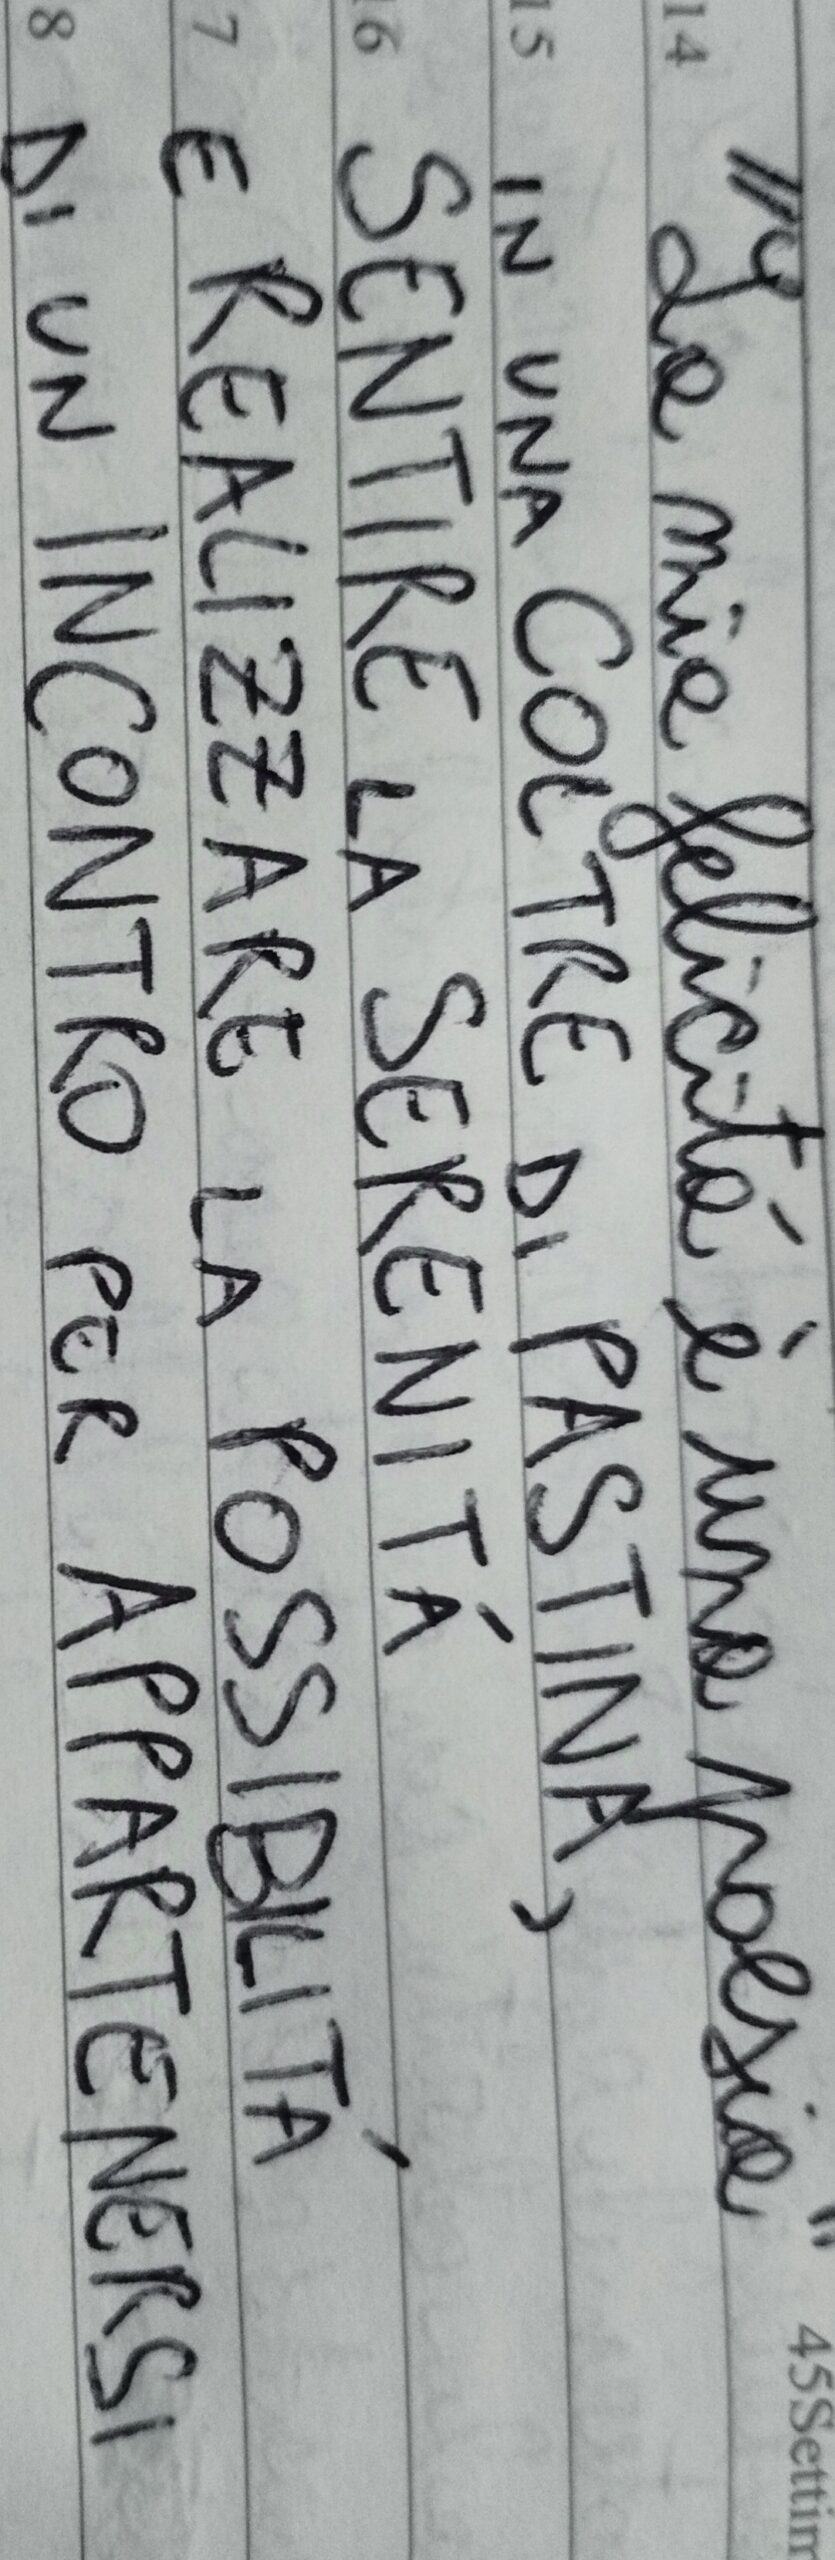 45Settim
14 "La mia felicitá è una poesia"
15 IN UNA COLTRE DI PASTINA,
16 SENTIRE LA SERENITÁ
7 E REALIZZARE LA POSSIBILITÁ
8 DI UN INCONTRO PER APPARTENERSI